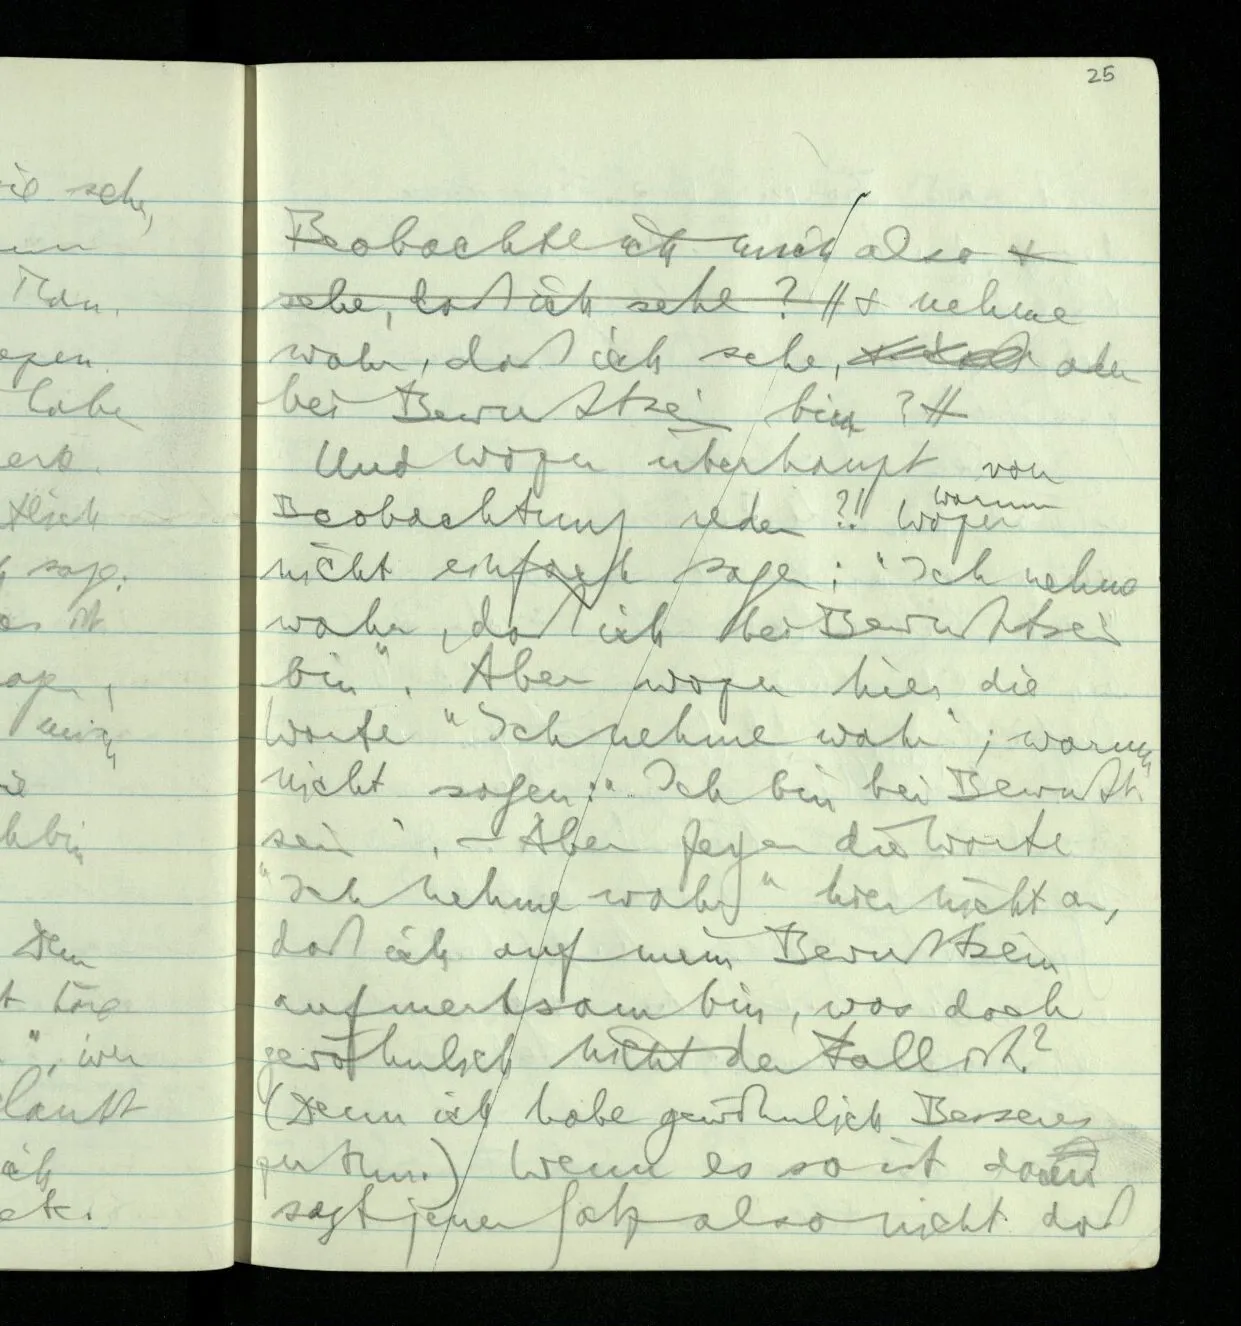 25
Beobachte ich mich also &
sehe, daß ich sehe? // & nehme
wahr, daß ich sehe, oder
bei Bewußtsein bin? //
Und wozu überhaupt von
Beobachtung reden?! Wozu warum
nicht einfach sagen: "Ich nehme
wahr, daß ich bei Bewußtsein
bin". Aber wozu hier die
Worte "Ich nehme wahr"; warum
nicht sagen: "Ich bin bei Bewußt
sein". – Aber zeigen die Worte
"Ich nehme wahr" hier nicht an,
daß ich auf mein Bewußtsein
aufmerksam bin, was doch
gewöhnlich nicht der Fall ist?
(Denn ich habe gewöhnlich Besseres
zu thun.) Wenn es so ist dann
sagt jener Satz also nicht daß
sie sehe,
Man.
habe
sage.
mich
bin
Dem
", wer
läuft
ich
etc.